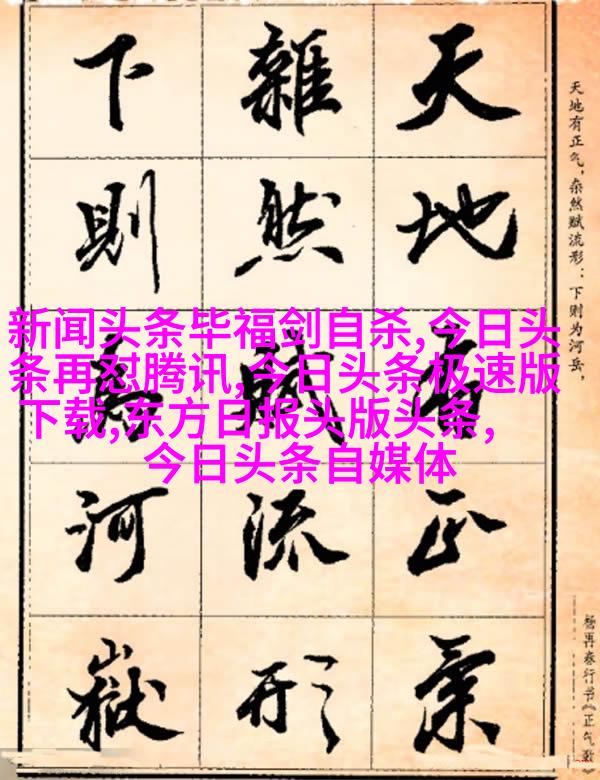 天地有正氣
雜然賦流形
下則為河嶽
天地有正气，杂然赋流形：下则为河岳，
杨再春行书《正气歌》
新闻头条毕福剑自杀,今日头
条再怼腾讯,今日头条极速版
下载,东方日报头版头条,
今日头条自媒体